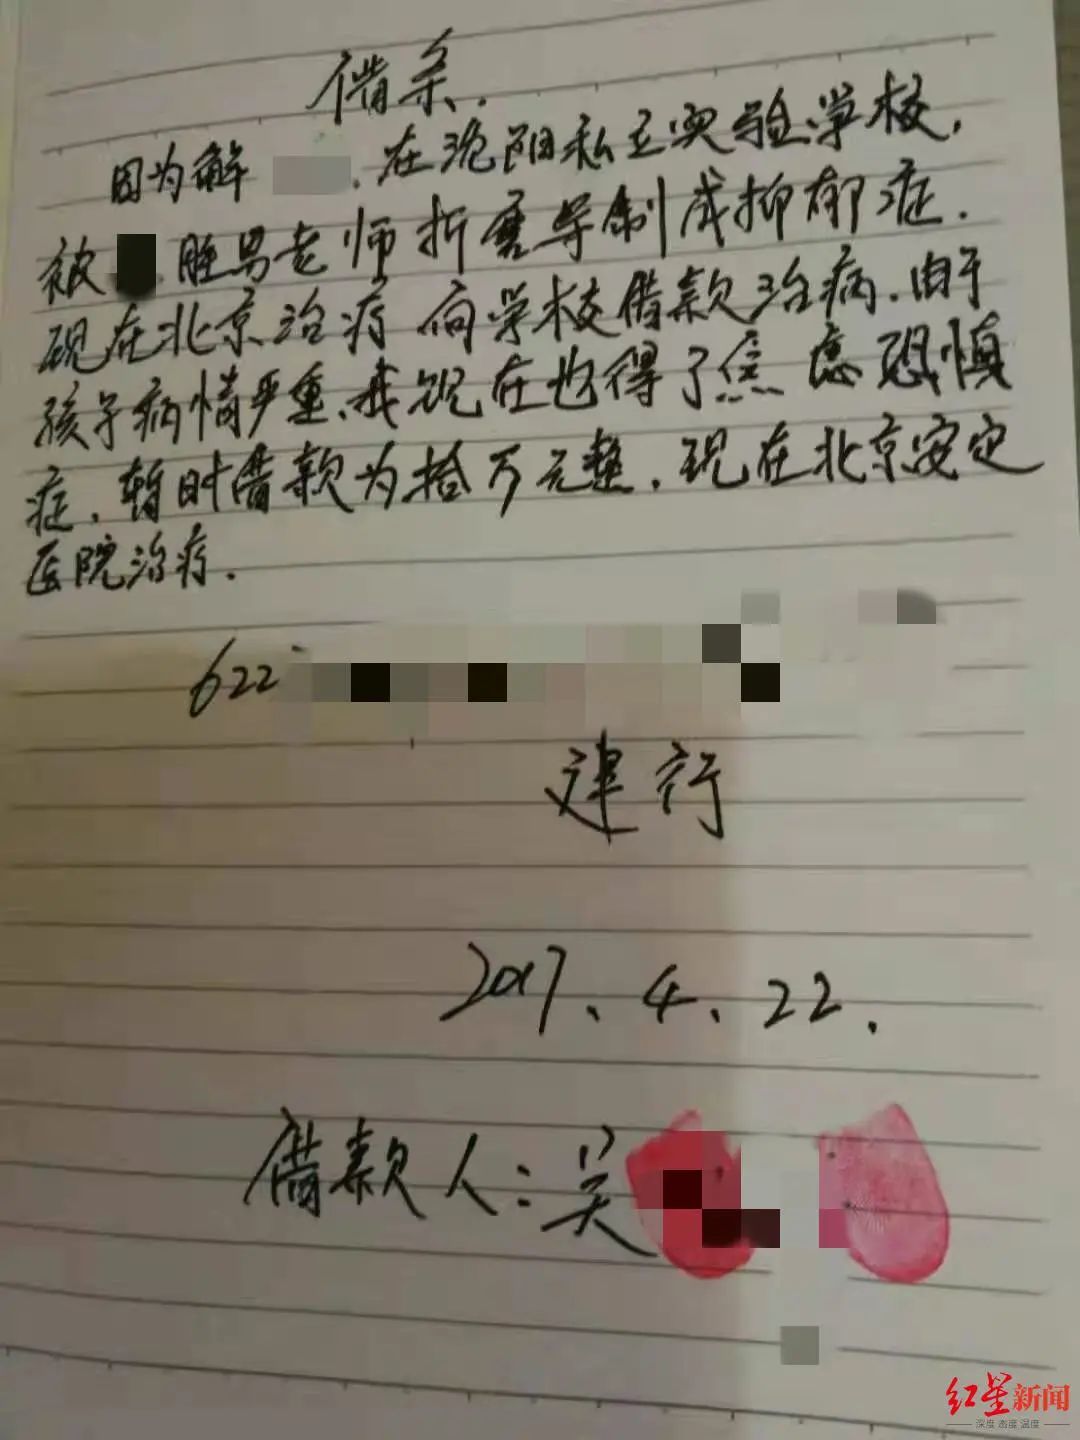 借条.
因为解 .在沈阳私立实验学校,
被 胜男老师折磨导制成抑郁症.
现在北京治疗 向学校借款治病.由于
孩子病情严重、我现在也得了焦虑恐惧
症.暂时借款为拾万元整.现在北京安定
医院治疗.
622
建行
2017.4.22.
借款人:吴
红星新闻
深度 态度 温度